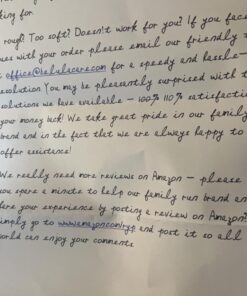 king for.
rough? Too soft? Doesn't work for you? If you face
ues with your order please email our friendly
office@lelulacare.com for a speedy and hassle-
esolution You may be pleasantly surprised with t
solutions we have available - 100% 110% satisfactio
your money back! We take great pride in our family
brand and in the fact that we are always happy to
offer assistance!
We really need more reviews on Amazon - please
you spare a minute to help our family run brand an
are your experience by posting a review on Amazon?
imply go to www.amazon.com/ryp and post it so all
world can enjoy your comments